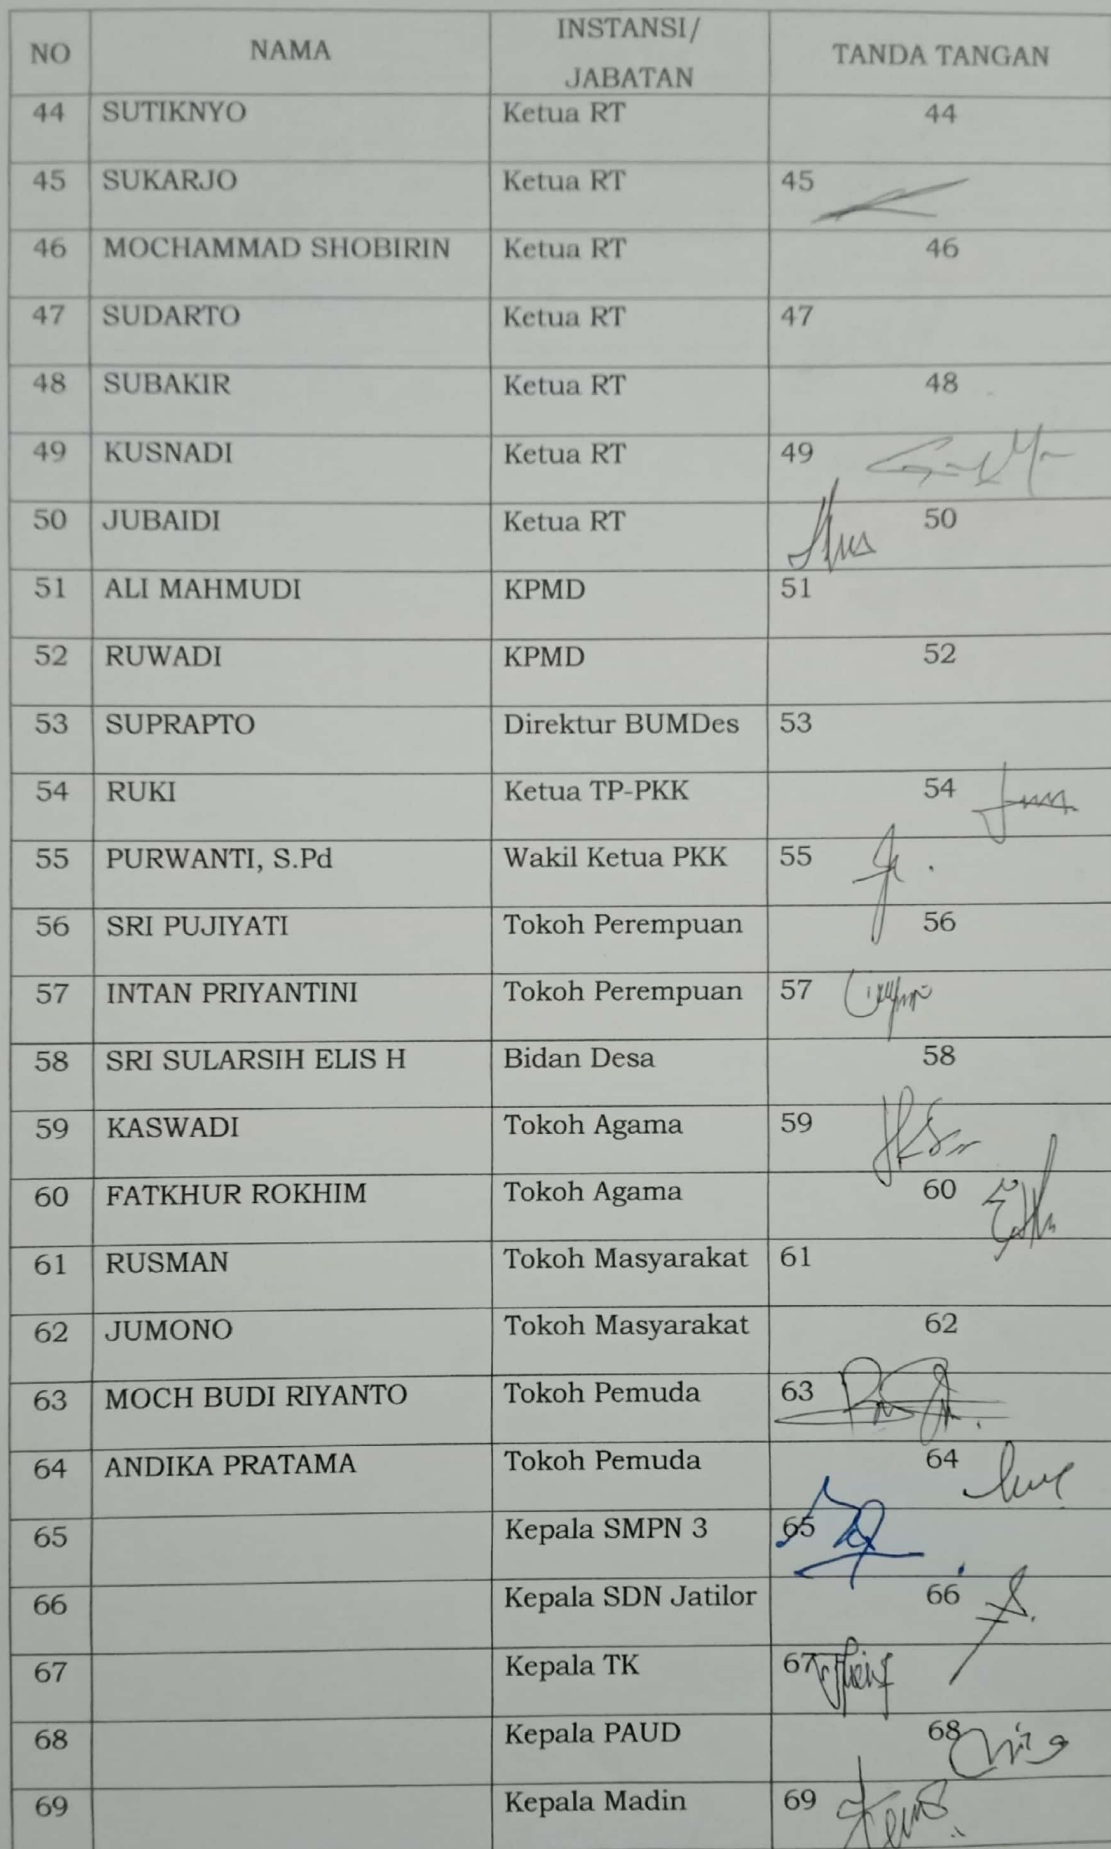 NO NAMA INSTANSI/ JABATAN TANDA TANGAN
44 SUTIKNYO Ketua RT 44
45 SUKARJO Ketua RT 45
46 MOCHAMMAD SHOBIRIN Ketua RT 46
47 SUDARTO Ketua RT 47
48 SUBAKIR Ketua RT 48
49 KUSNADI Ketua RT 49
50 JUBAIDI Ketua RT 50
51 ALI MAHMUDI KPMD 51
52 RUWADI KPMD 52
53 SUPRAPTO Direktur BUMDes 53
54 RUKI Ketua TP-PKK 54
55 PURWANTI, S.Pd Wakil Ketua PKK 55
56 SRI PUJIYATI Tokoh Perempuan 56
57 INTAN PRIYANTINI Tokoh Perempuan 57
58 SRI SULARSIH ELIS H Bidan Desa 58
59 KASWADI Tokoh Agama 59
60 FATKHUR ROKHIM Tokoh Agama 60
61 RUSMAN Tokoh Masyarakat 61
62 JUMONO Tokoh Masyarakat 62
63 MOCH BUDI RIYANTO Tokoh Pemuda 63
64 ANDIKA PRATAMA Tokoh Pemuda 64
65 Kepala SMPN 3 65
66 Kepala SDN Jatilor 66
67 Kepala TK 67
68 Kepala PAUD 68
69 Kepala Madin 69